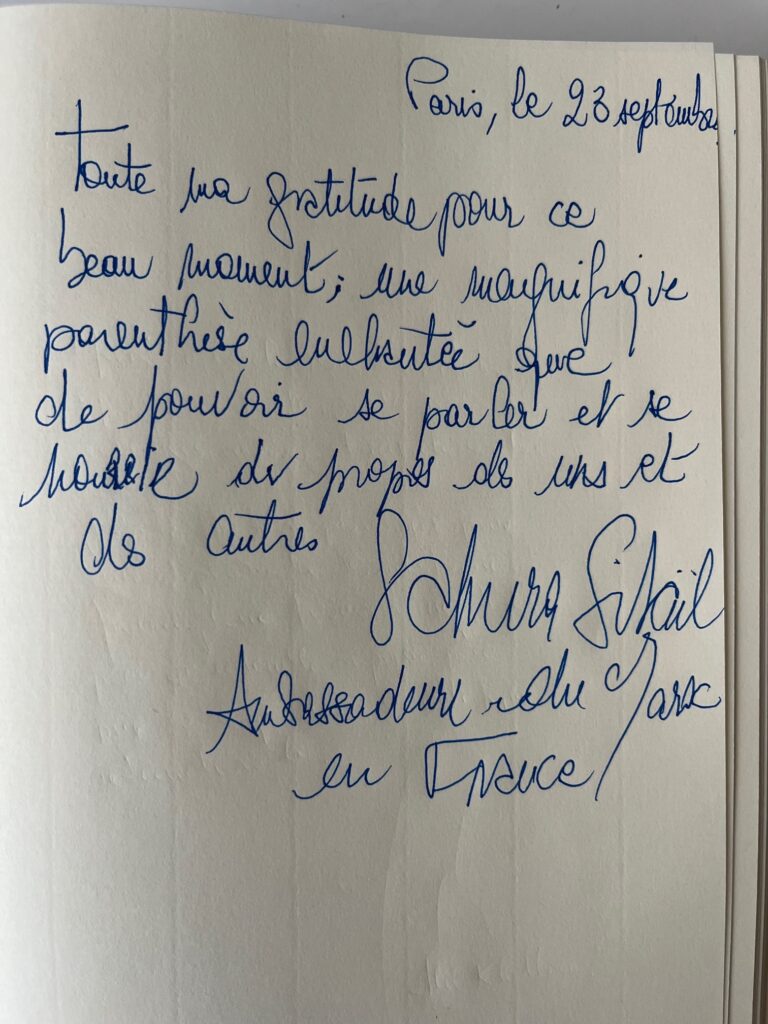 Paris, le 23 septembre
Toute ma gratitude pour ce
beau moment; une magnifique
parenthèse enchantée que
de pouvoir se parler et se
nourrir des propos des uns et
des autres
Samira Sitaïl
Ambassadeure du Maroc
en France